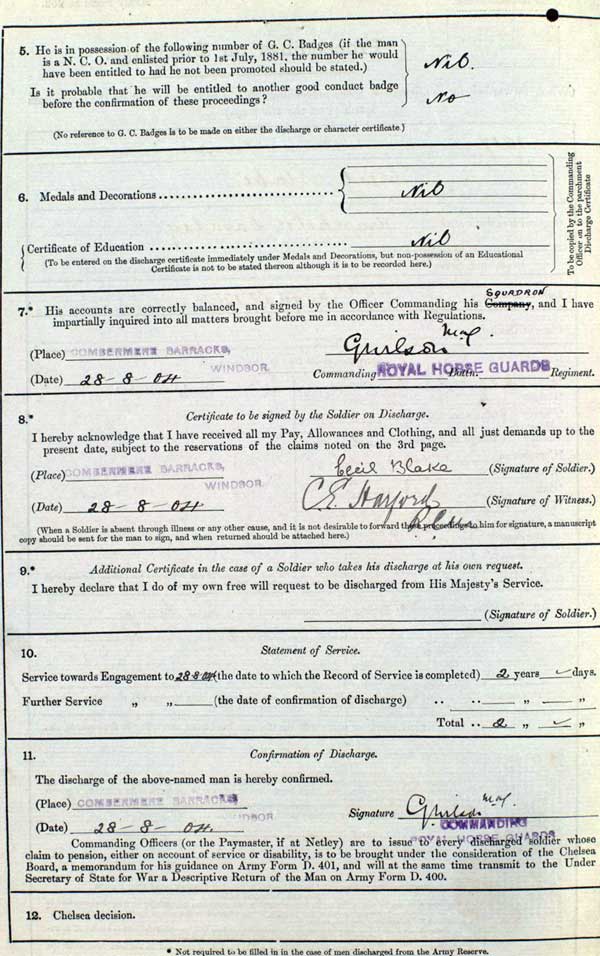 5. He is in possession of the following number of G. C. Badges (if the man
is a N. C. O. and enlisted prior to 1st July, 1881, the number he would
have been entitled to had he not been promoted should be stated.)
Nil.
Is it probable that he will be entitled to another good conduct badge
before the confirmation of these proceedings?
No
(No reference to G. C. Badges is to be made on either the discharge or character certificate.)
6. Medals and Decorations
Nil
Certificate of Education
Nil
(To be entered on the discharge certificate immediately under Medals and Decorations, but non-possession of an Educational
Certificate is not to be stated thereon although it is to be recorded here.)
To be copied by the Commanding
Officer on to the parchment
Discharge Certificate
SQUADRON
7.* His accounts are correctly balanced, and signed by the Officer Commanding his Company, and I have
impartially inquired into all matters brought before me in accordance with Regulations.
(Place) COMBERMERE BARRACKS,
WINDSOR.
Maj.
(Date) 28-8-04
Commanding ROYAL HORSE GUARDS Battn. Regiment.
8.* Certificate to be signed by the Soldier on Discharge.
I hereby acknowledge that I have received all my Pay, Allowances and Clothing, and all just demands up to the
present date, subject to the reservations of the claims noted on the 3rd page.
(Place) COMBERMERE BARRACKS, Cecil Blake (Signature of Soldier.)
WINDSOR.
(Date) 28-8-04 C.E. Harford (Signature of Witness.)
(When a Soldier is absent through illness or any other cause, and it is not desirable to forward these proceedings to him for signature, a manuscript
copy should be sent for the man to sign, and when returned should be attached here.)
9.* Additional Certificate in the case of a Soldier who takes his discharge at his own request.
I hereby declare that I do of my own free will request to be discharged from His Majesty's Service.
(Signature of Soldier.)
10. Statement of Service.
Service towards Engagement to 28-8-04 (the date to which the Record of Service is completed) 2 years days.
Further Service „ „ (the date of confirmation of discharge) „ „
Total 2 „ „
11. Confirmation of Discharge.
The discharge of the above-named man is hereby confirmed.
(Place) COMBERMERE BARRACKS
WINDSOR.
Signature Maj.
(Date) 28-8-04.
COMMANDING
ROYAL HORSE GUARDS
Commanding Officers (or the Paymaster, if at Netley) are to issue to every discharged soldier whose
claim to pension, either on account of service or disability, is to be brought under the consideration of the Chelsea
Board, a memorandum for his guidance on Army Form D. 401, and will at the same time transmit to the Under
Secretary of State for War a Descriptive Return of the Man on Army Form D. 400.
12. Chelsea decision.
* Not required to be filled in in the case of men discharged from the Army Reserve.